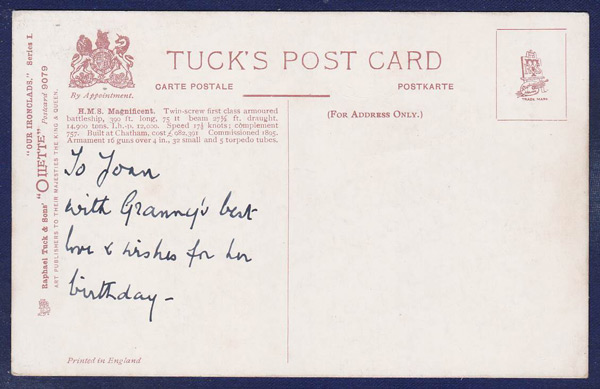 TUCK'S POST CARD
CARTE POSTALE
POSTKARTE
By Appointment.
TRADE MARK
(FOR ADDRESS ONLY.)
H.M.S. Magnificent. Twin-screw first class armoured
battleship, 390 ft. long, 75 ft beam 27½ ft. draught.
14,900 tons. I.h.-p. 12,000. Speed 17½ knots; complement
757. Built at Chatham, cost £ 982,391 Commissioned 1895.
Armament 16 guns over 4 in., 32 small and 5 torpedo tubes.
To Joan
with Granny's best
love & wishes for her
birthday -
Printed in England
"OUR IRONCLADS." Series I.
Raphael Tuck & Sons' "OILETTE" Postcard 9079
ART PUBLISHERS TO THEIR MAJESTIES THE KING & QUEEN.